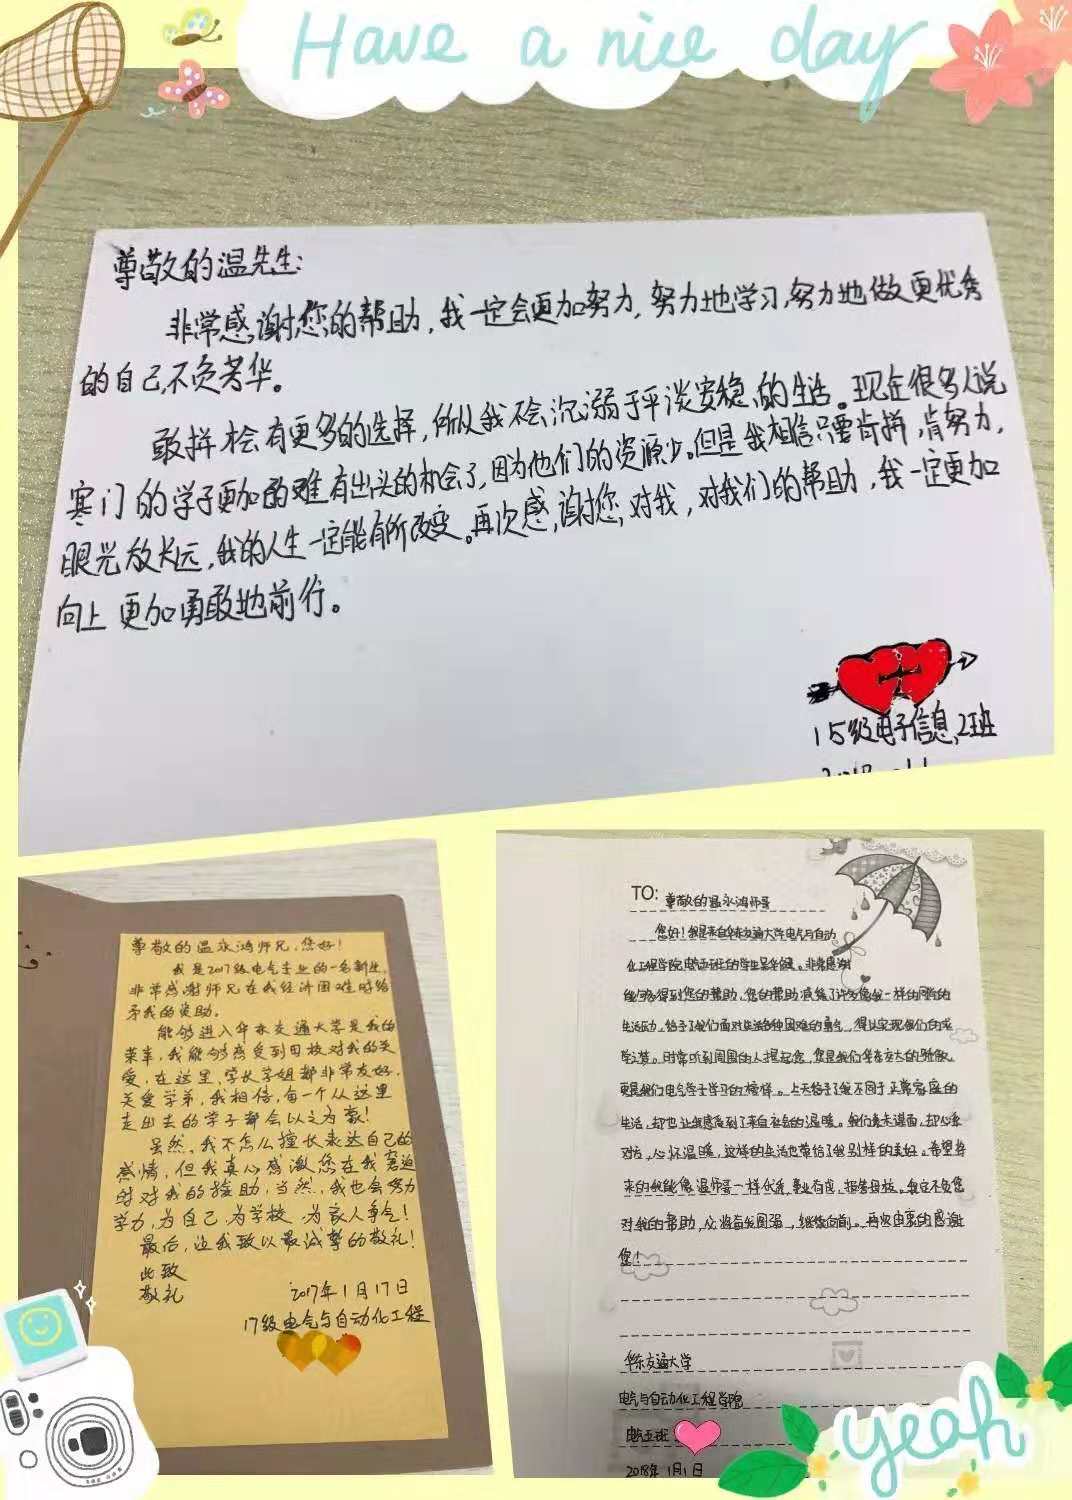 Have a nice day
尊敬的温先生:
非常感谢您的帮助,我一定会更加努力,努力地学习,努力地做更优秀
的自己,不负芳华。
敢拼才会有更多的选择,所以我不会沉溺于平淡安稳的生活。现在很多人说
寒门的学子更加的难有出头的机会了,因为他们的资源少。但是我相信只要肯拼,肯努力,
眼光放长远,我的人生一定能有所改变。再次感谢您对我,对我们的帮助,我一定更加
向上 更加勇敢地前行。
15级电子信息2班
尊敬的温永鸿师兄,您好!
我是2017级电气专业的一名新生,
非常感谢师兄在我经济困难时给
予我的资助。
能够进入华东交通大学是我的
荣幸,我能够感受到母校对我的关
爱,在这里,学长学姐都非常友好,
关爱学弟,我相信,每一个从这里
走出去的学子都会以之为豪!
虽然,我不怎么擅长表达自己的
感情,但我真心感激您在我窘迫
时对我的援助,当然,我也会努力
学力,为自己,为学校,为家人争气!
最后,这我致以最诚挚的敬礼!
此致
敬礼
2017年1月17日
17级电气与自动化工程
TO: 尊敬的温永鸿师哥
您好!我是来自华东交通大学电气与自动
化工程学院电五班的学生。非常感谢
能够得到您的帮助,您的帮助给了许多像我一样的同学的
生活动,给予了我们面对生活各种困难的勇气,得以实现我们的
学梦。时常听到周围的人提起您,您是我们华东交大的骄傲,
更是我们电气学子学习的榜样。上天给予了我不同于正常家庭的
生活,却也让我感受到了来自社会的温暖。我们素未谋面,却心系
对方,心怀温暖,这样的生活也带给了我别样的美好。希望将
来的我能像温师哥一样优秀,事业有成,报答母校。我定不负您
对我的帮助,奋发图强,继续向前。再次由衷的感谢
您!
华东交通大学
电气与自动化工程学院
电五班
2018年1月1日
yeah